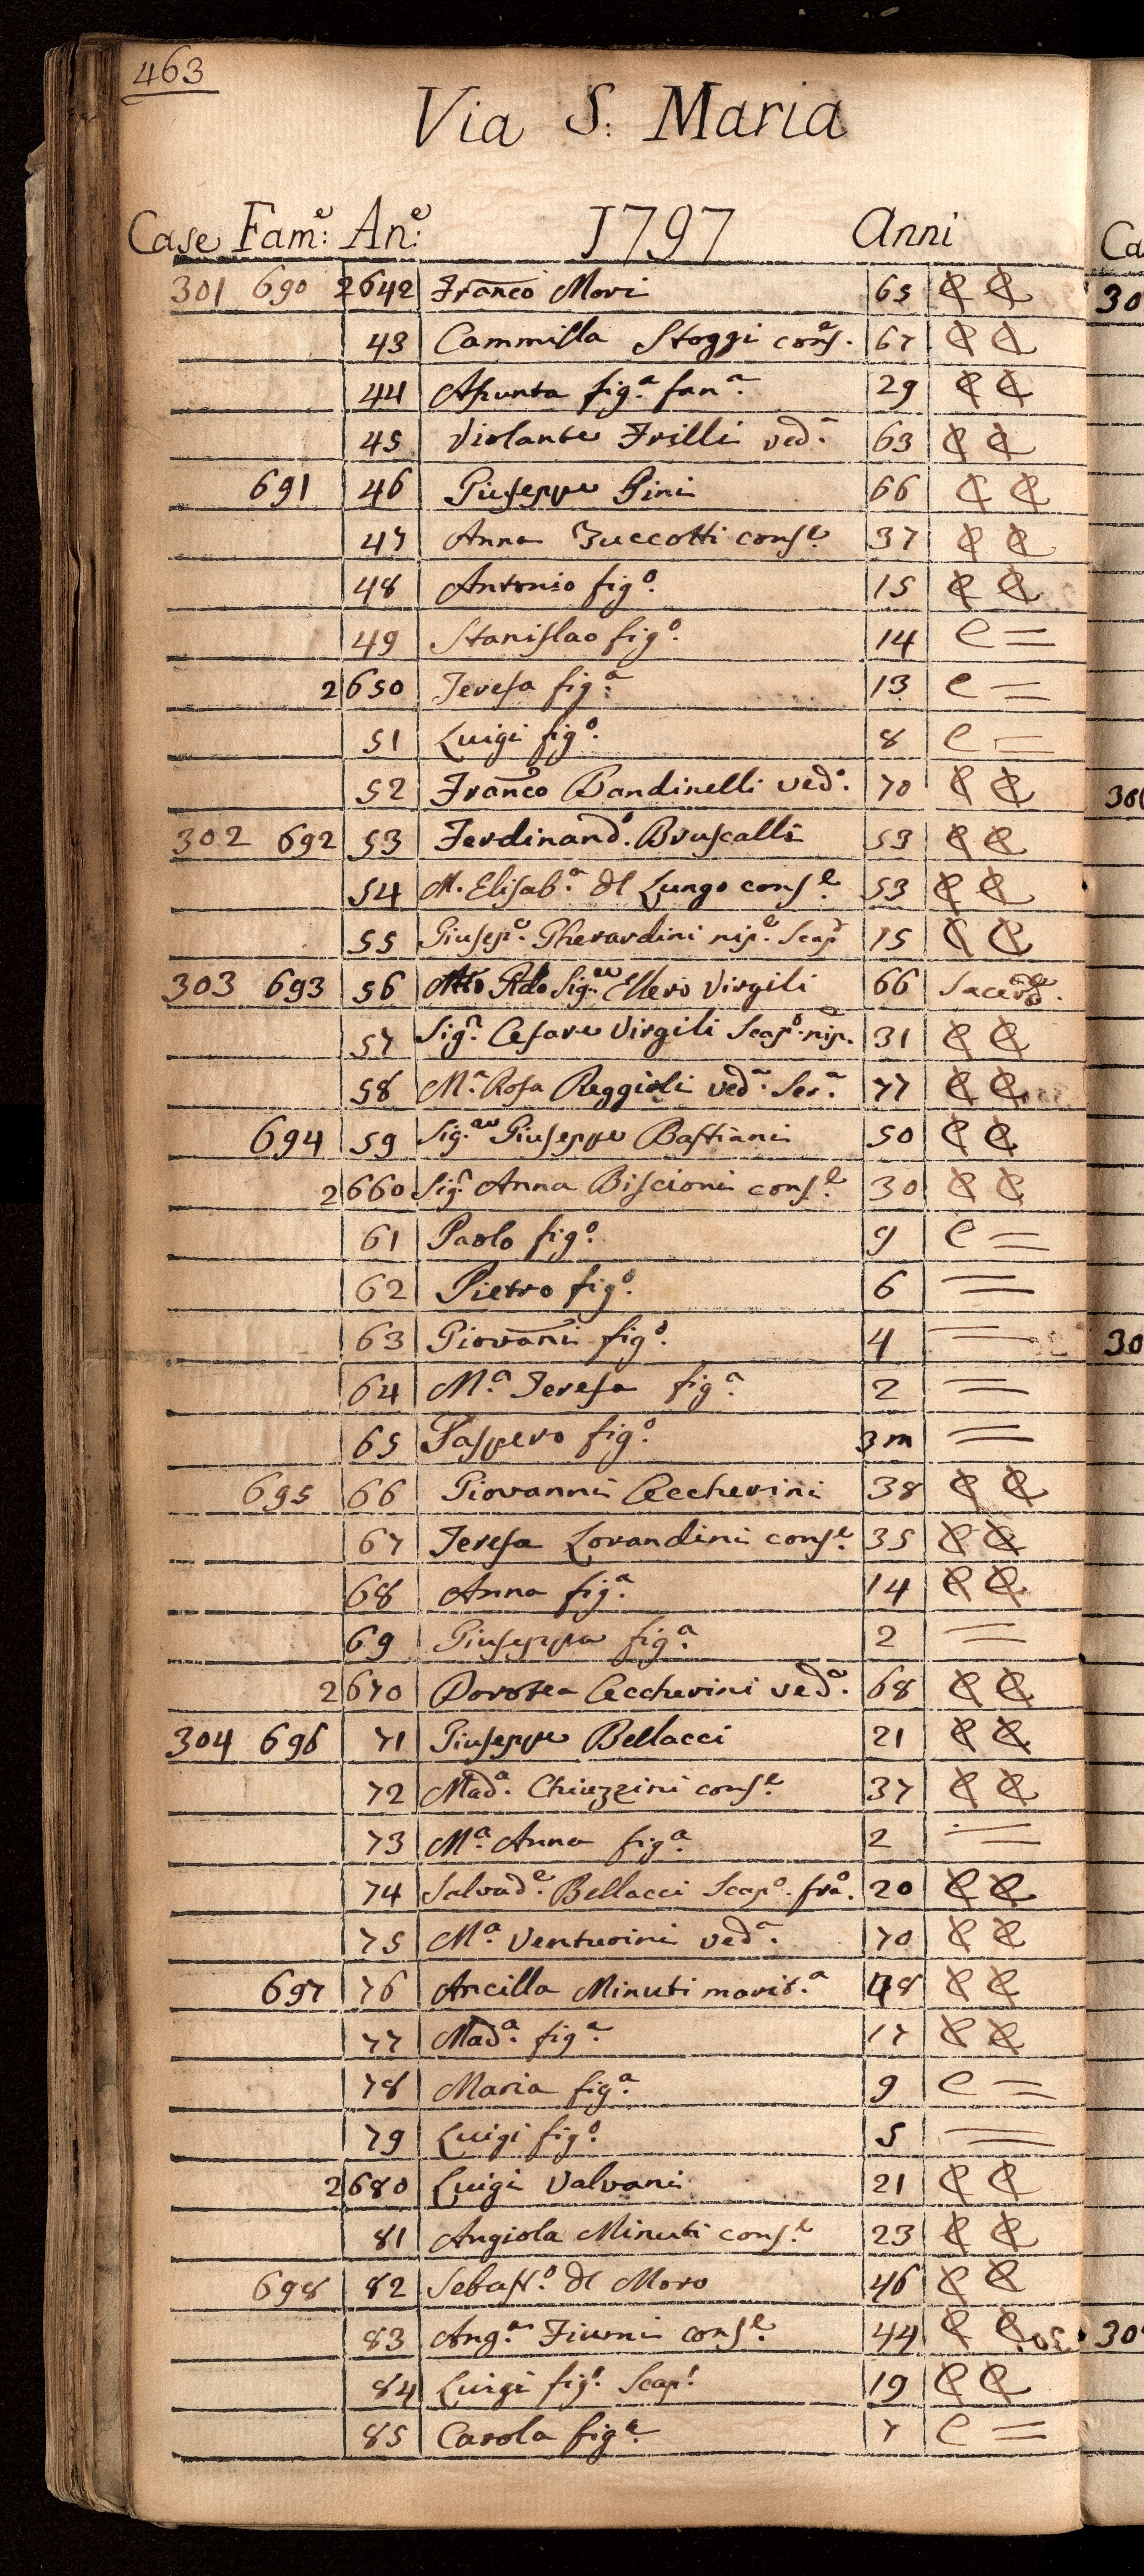 463
Via S. Maria
Case Fam:e An:e 1797 Anni
301 690 2642 Franco Mori 65 C C
43 Cammilla Stoggi cons.e 67 C C
44 Aſsunta fig.a fan.a 29 C C
45 Violante Frilli ved.a 63 C C
691 46 Giuſeppe Pini 66 C C
47 Anna Zuccotti conſ.e 37 C C
48 Antonio fig.o 15 C C
49 Staniſlao fig.o 14 C =
2650 Tereſa fig.a 13 C =
51 Luigi fig.o 8 C =
52 Franco Bandinelli ved.o 70 C C
302 692 53 Ferdinand.o Bruſcalli 53 C C
54 M. Eliſab.a del Lungo conſ.e 53 C C
55 Giuſep.e Gherardini nip.e Scap.o 15 C C
303 693 56 Sig.re Ellero Virgili 66 Sacerdte.
57 Sig.r Ceſare Virgili Scap.o nip. 31 C C
58 M.a Roſa Reggioli ved.a Ser.a 77 C C
694 59 Sig.re Giuſeppe Baſtiani 50 C C
2660 Sig.ra Anna Biſcioni conſ.e 30 C C
61 Paolo fig.o 9 C =
62 Pietro fig.o 6 =
63 Giovani fig.o 4 =
64 M.a Tereſa fig.a 2 =
65 Gaſpero fig.o 3m =
695 66 Giovanni Ceccherini 38 C C
67 Tereſa Lorandini conſ.e 35 C C
68 Anna fig.a 14 C C
69 Giuſeppa fig.a 2 =
2670 Dorotea Ceccherini ved.a 68 C C
304 696 71 Giuſeppe Bellacci 21 C C
72 Mad.a Chiuzzini conſ.e 37 C C
73 M.a Anna fig.a 2 =
74 Salvad.e Bellacci Scap.o fra.o 20 C C
75 M.a Venturini ved.a 70 C C
697 76 Ancilla Minuti marit.a 48 C C
77 Mad.a fig.a 17 C C
78 Maria fig.a 9 C =
79 Luigi fig.o 5 =
2680 Luigi Valvani 21 C C
81 Angiola Minuti conſ.e 23 C C
698 82 Sebaſt.o del Moro 46 C C
83 Ang.a Fiumi conſ.e 44 C C
84 Luigi fig.o Scap.o 19 C C
85 Carola fig.a 7 C =